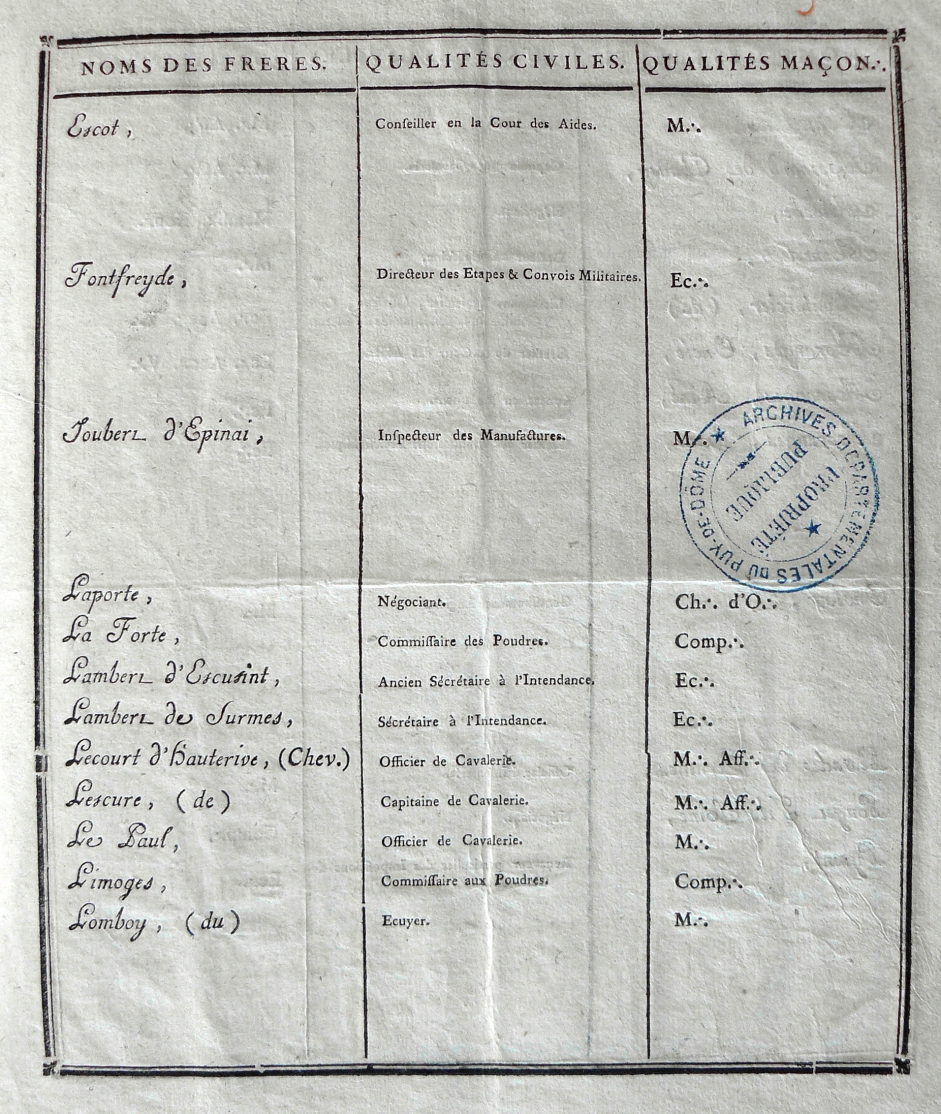 NOMS DES FRERES. QUALITÉS CIVILES. QUALITÉS MAÇON∴
Escot, Conseiller en la Cour des Aides. M∴
Fontfreyde, Directeur des Etapes & Convois Militaires. Ec∴
Joubert d'Epinai, Inspecteur des Manufactures. M∴
ARCHIVES DÉPARTEMENTALES DU PUY-DE-DÔME
PROPRIÉTÉ
PUBLIQUE
Laporte, Négociant. Ch∴ d'O∴
La Forte, Commissaire des Poudres. Comp∴
Lambert d'Escusint, Ancien Sécrétaire à l'Intendance. Ec∴
Lambert de Surmes, Sécrétaire à l'Intendance. Ec∴
Lecourt d'Hauterive, (Chev.) Officier de Cavalerie. M∴ Aff∴
Lescure, (de) Capitaine de Cavalerie. M∴ Aff∴
Le Paul, Officier de Cavalerie. M∴
Limoges, Commissaire aux Poudres. Comp∴
Lomboy, (du) Ecuyer. M∴